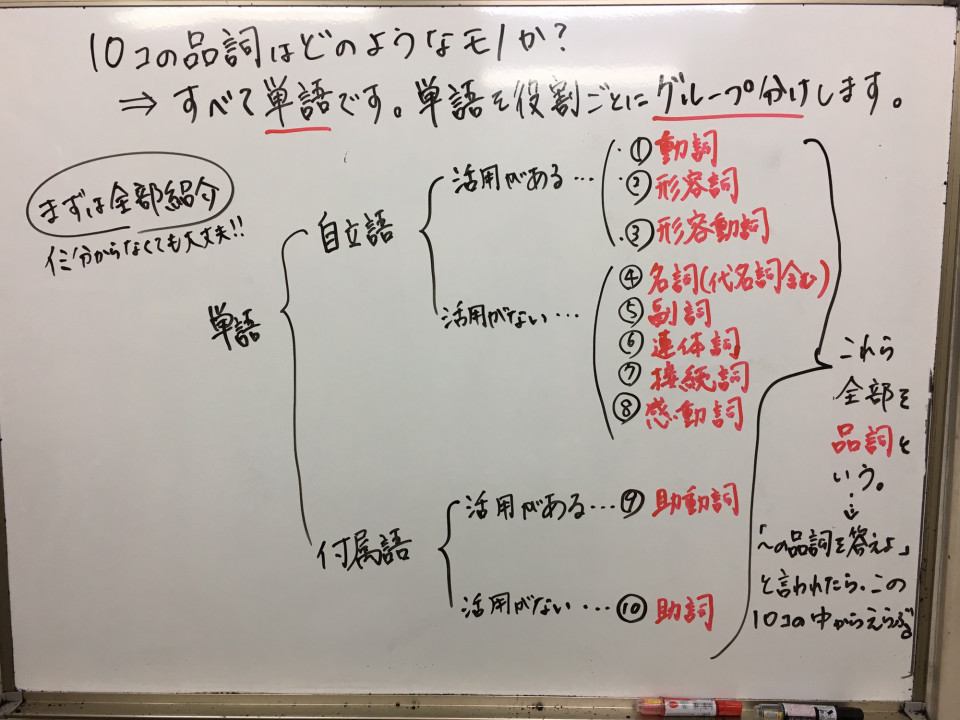 10コの品詞はどのようなモノか？
⇒ すべて単語です。単語を役割ごとにグループ分けします。
まずは全部紹介
今分からなくても大丈夫!!
単語
自立語
活用がある…
・①動詞
・②形容詞
・③形容動詞
活用がない…
④名詞(代名詞含む)
⑤副詞
⑥連体詞
⑦接続詞
⑧感動詞
付属語
活用がある…⑨助動詞
活用がない…⑩助詞
これら
全部を
品詞と
いう。
「〜の品詞を答えよ」
と言われたら、この
10コの中からえらぶ